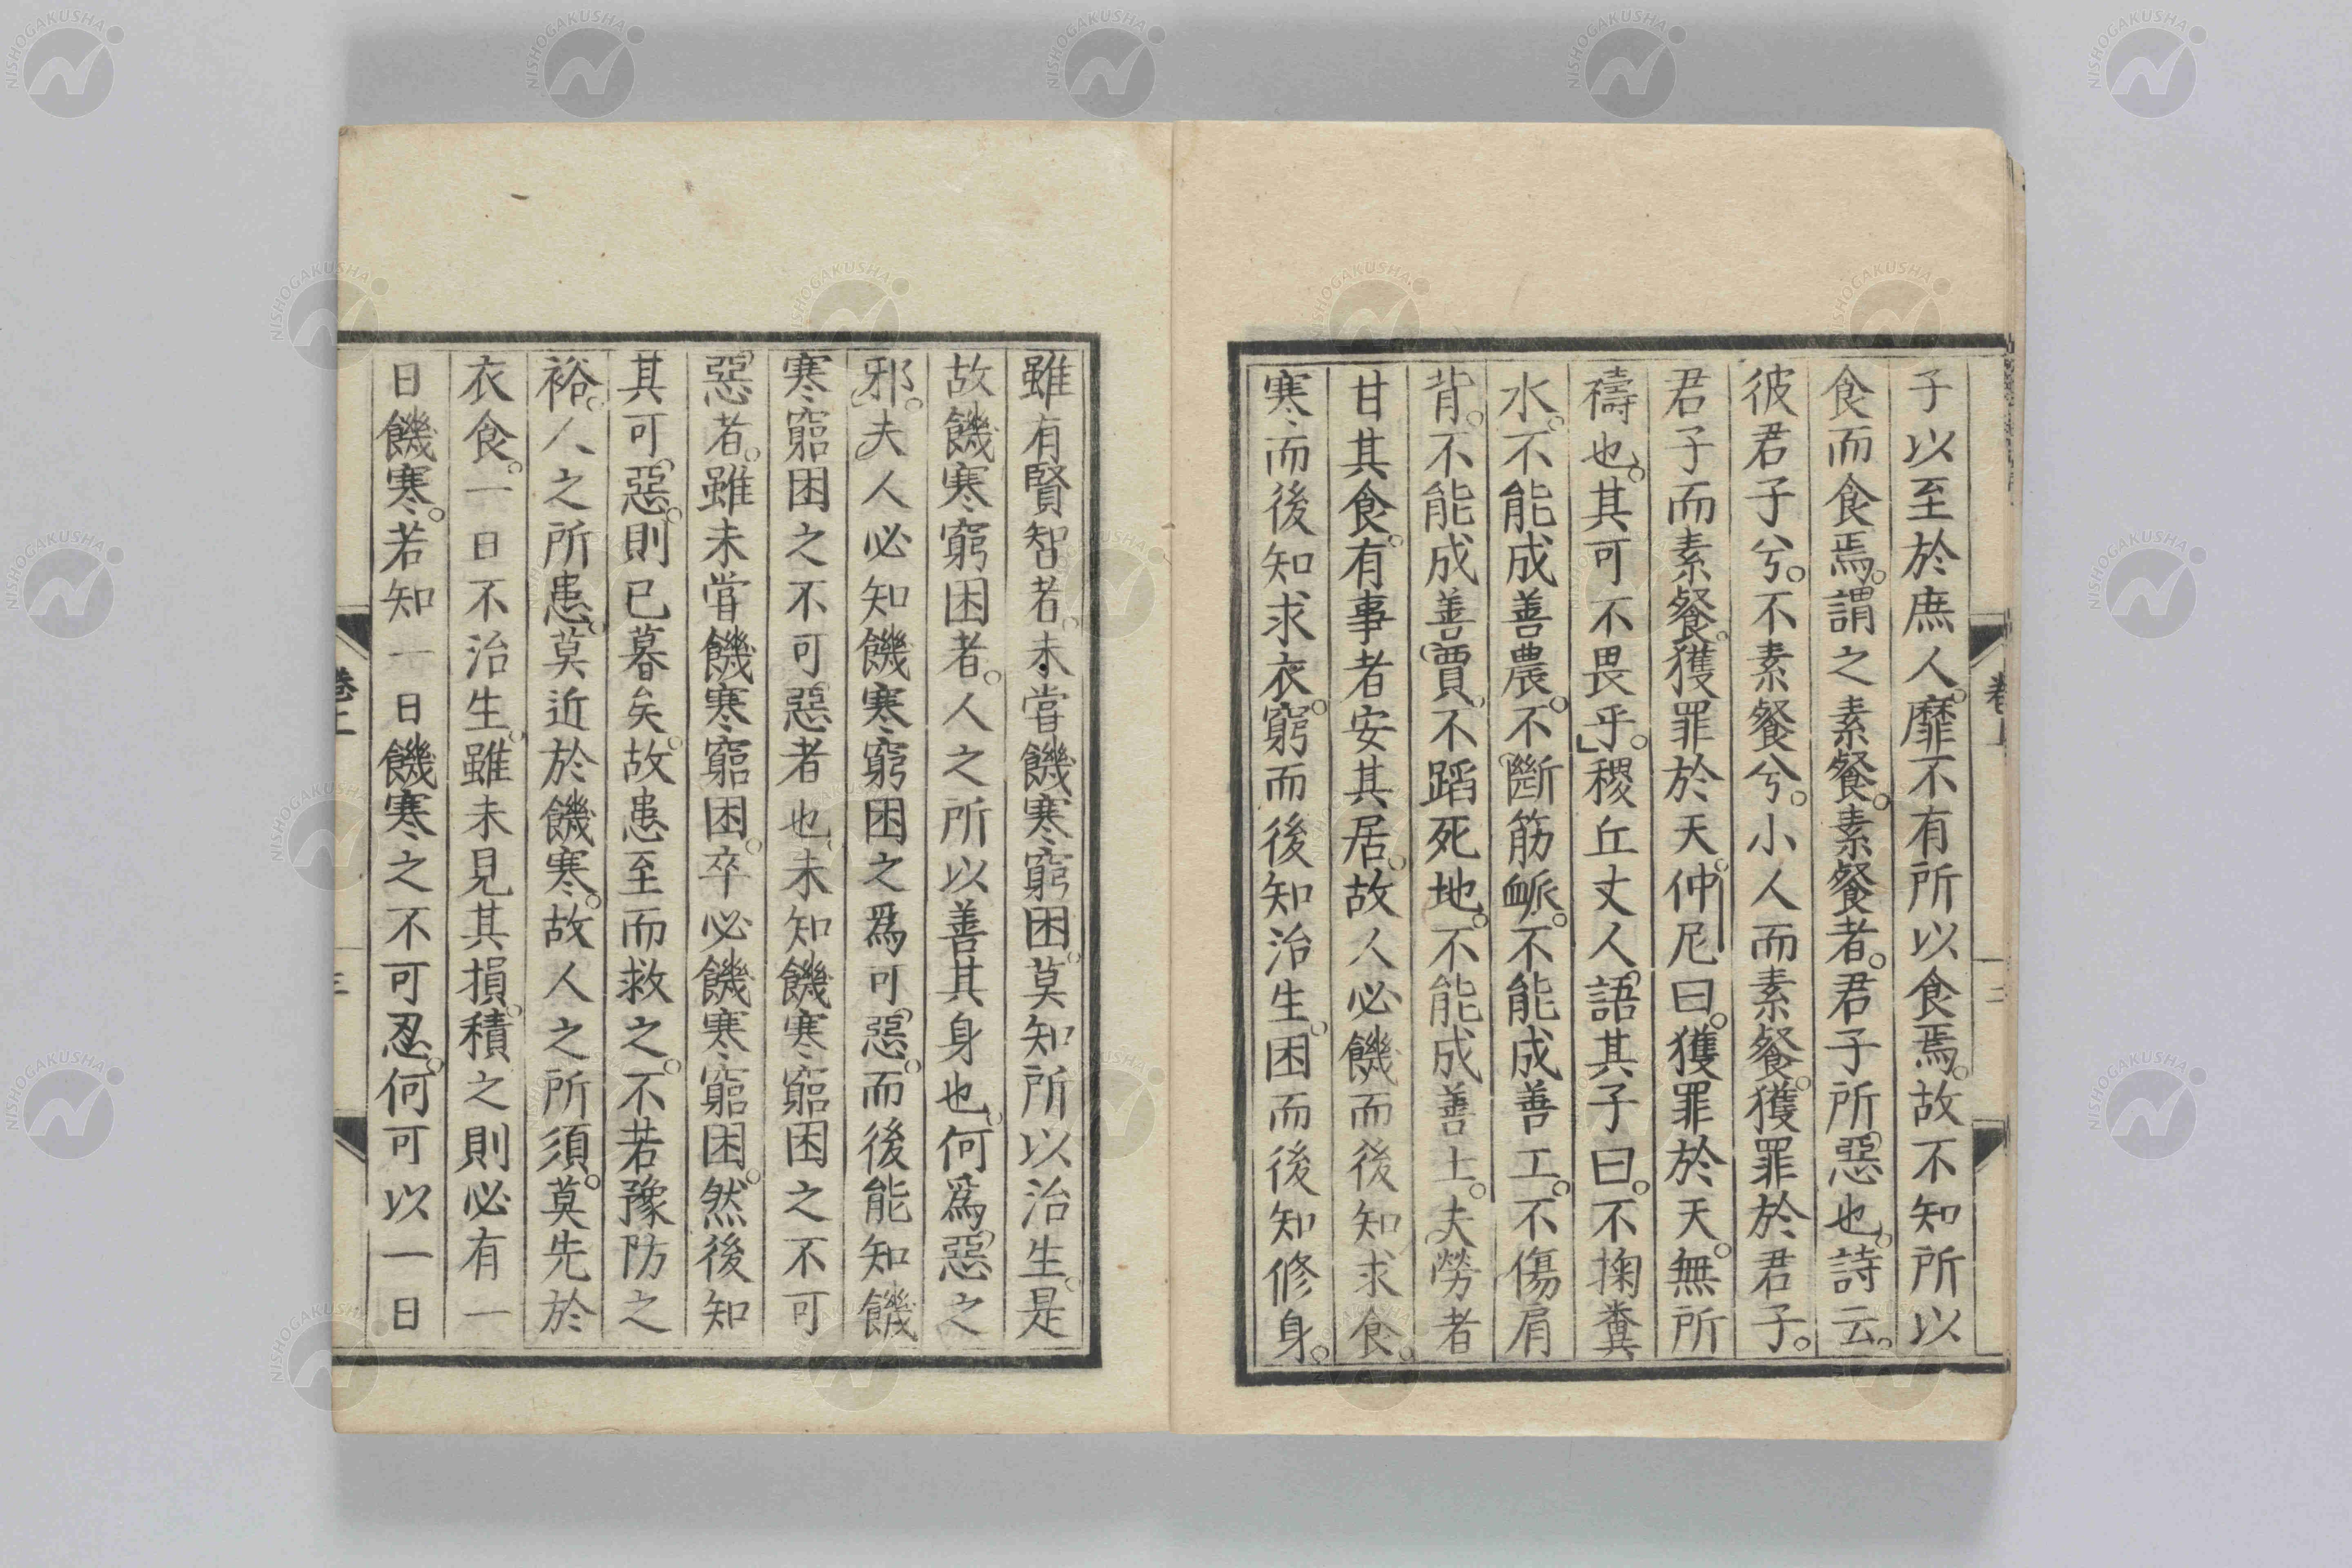 子以至於庶人。靡不有所以食焉。故不知所以
食而食焉。謂之素餐。素餐者。君子所惡也。詩云。
彼君子兮。不素餐兮。小人而素餐。獲罪於君子。
君子而素餐。獲罪於天。仲尼曰。獲罪於天。無所
禱也。其可不畏乎。」稷丘丈人。語其子曰。不掬糞
水。不能成善農。不斷筋衇。不能成善工。不傷肩
背。不能成善賈。不蹈死地。不能成善士。夫勞者
甘其食。有事者安其居。故人必饑而後知求食。
寒而後知求衣。窮而後知治生。困而後知修身。
卷上
三
雖有賢智者。未嘗饑寒窮困。莫知所以治生。是
故饑寒窮困者。人之所以善其身也。何爲惡之
邪。夫人必知饑寒窮困之爲可惡。而後能知饑
寒窮困之不可惡者也。未知饑寒窮困之不可
惡者。雖未嘗饑寒窮困。卒必饑寒窮困。然後知
其可惡。則已暮矣。故患至而救之。不若豫防之
裕。人之所患。莫近於饑寒。故人之所須。莫先於
衣食。一日不治生。雖未見其損。積之則必有一
日饑寒。若知一日饑寒之不可忍。何可以一日
卷上
三
NISHOGAKUSHA